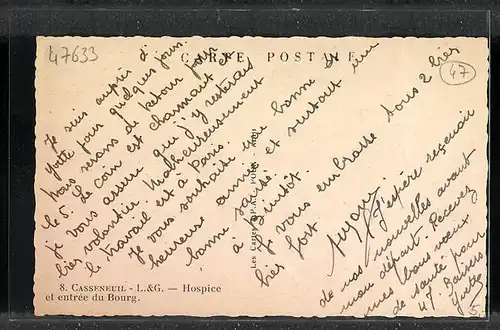 47633
CARTE POSTALE
47
Je suis auprès d'
Yvette pour quelques jours.
Nous serons de retour pour
le 5. Le coin est charmant et
je vous assure que j'y resterais
bien volontiers. Malheureusement
le travail est à Paris.
Je vous souhaite une bonne et
heureuse année et surtout une
bonne santé.
à Bientôt.
Je vous embrasse tous 2 bien
bien fort
Suzanne
J'espère recevoir
de vos nouvelles avant
mon départ. Recevez
mes bons voeux
de santé pour
47. Baisers
Yvette
8. CASSENEUIL - L.&G. — Hospice
et entrée du Bourg.